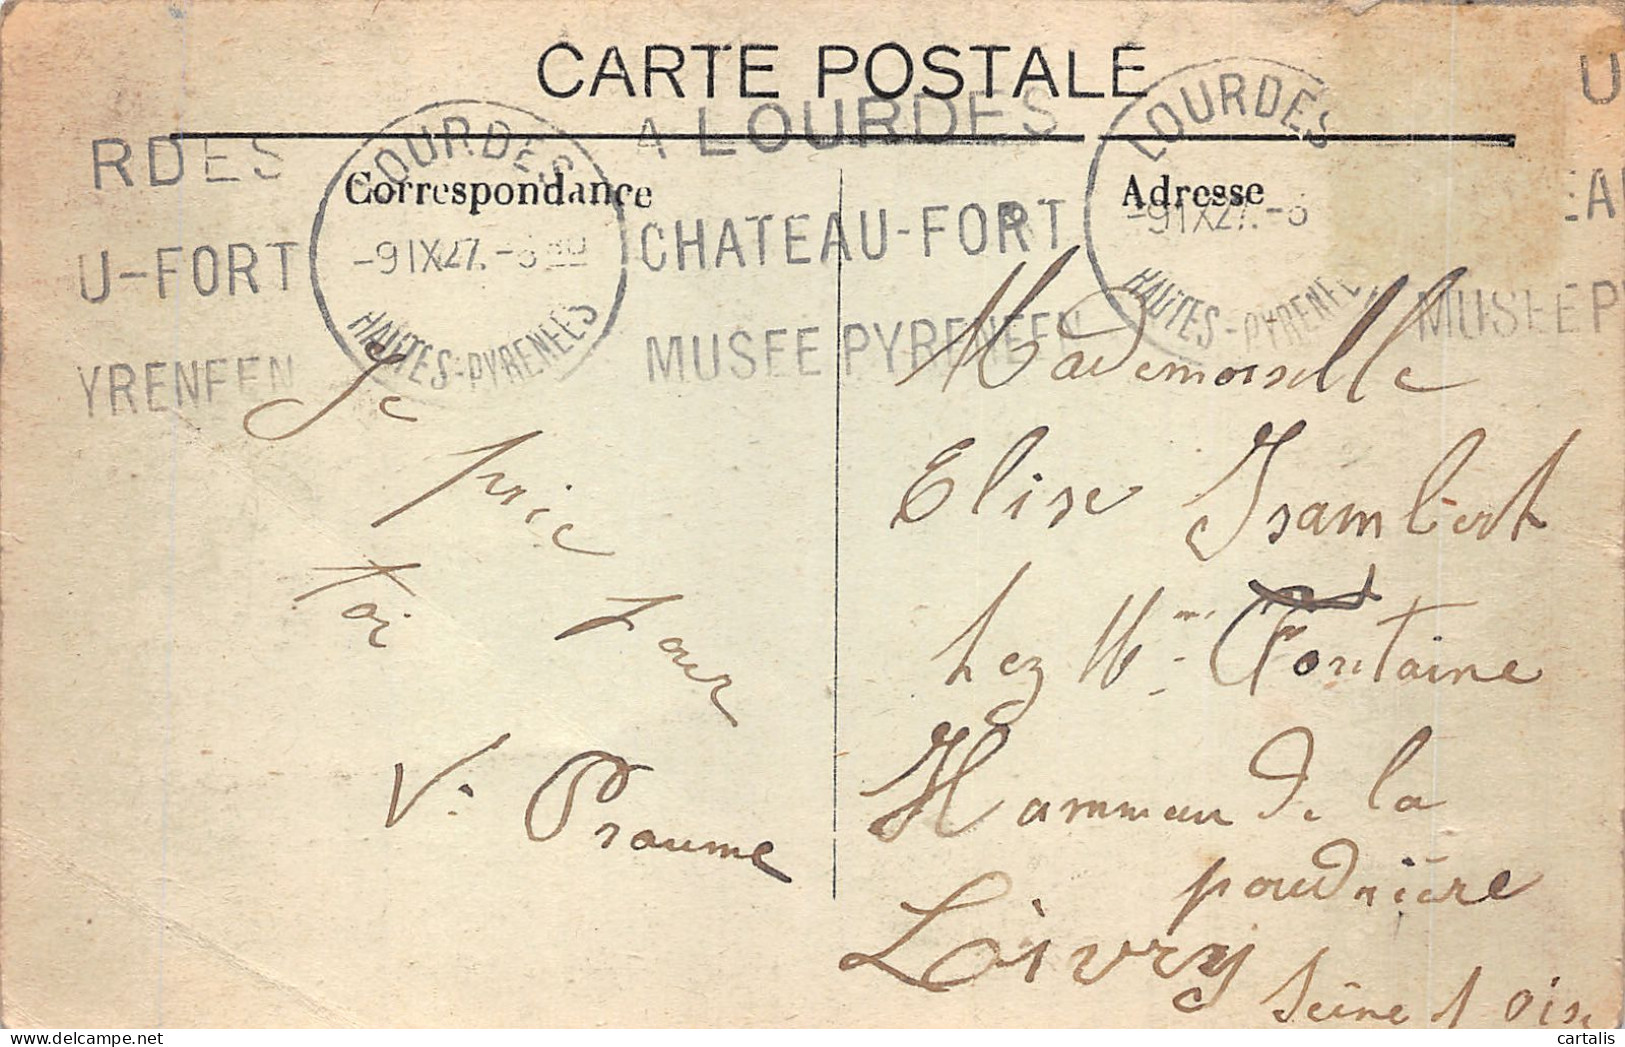 CARTE POSTALE
Correspondance
Adresse
RDES
U-FORT
YRENEEN
LOURDES
-9 IX 27. -
HAUTES-PYRENEES
A LOURDES
CHATEAU-FORT
MUSEE PYRENEEN
LOURDES
-9 IX 27. -
HAUTES-PYRENEE
U
EA
MUSEE P
Je
prie pour
toi
V. Praume
Mademoiselle
Elise Isambert
hez Mme Fontaine
Hammau de la
poudrière
Livry
Seine et Oise
cartalis
© delcampe.net